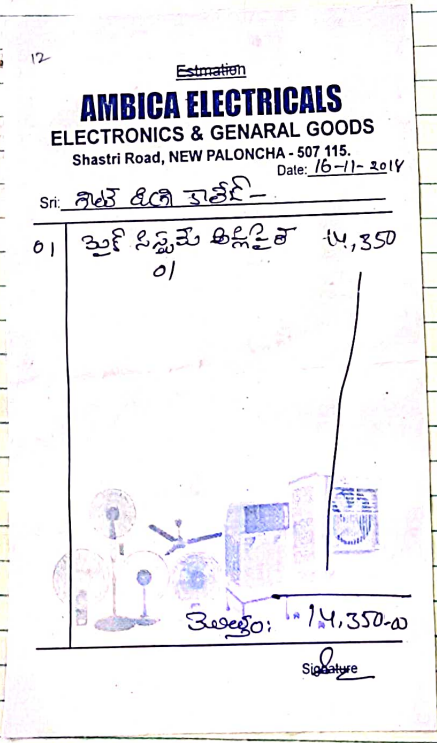 12
Estmation
AMBICA ELECTRICALS
ELECTRONICS & GENARAL GOODS
Shastri Road, NEW PALONCHA - 507 115.
Date: 16-11-2014
Sri: డిగ్రీ కాలేజ్ -
01 మైక్ సిస్టమ్ 14,350
01
మొత్తం: 14,350-00
Signature